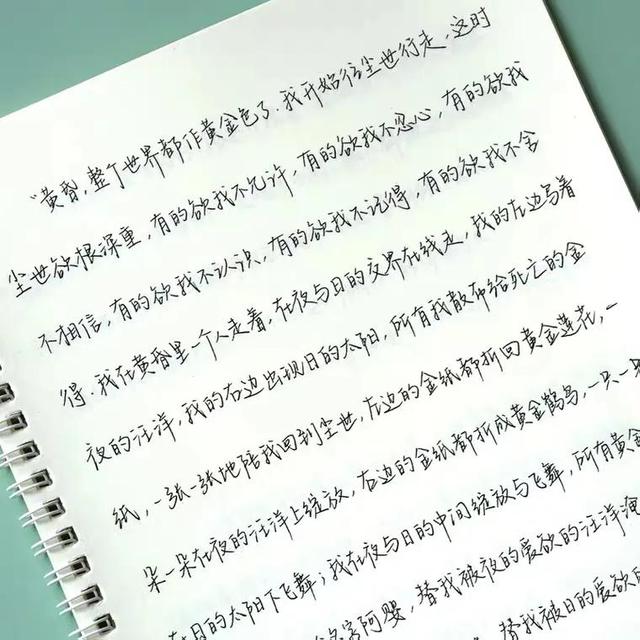 “黄昏，整个世界都作黄金色了，我开始往尘世行走，这时
尘世欲根深重，有的欲我不允许，有的欲我不忍心，有的欲我
不相信，有的欲我不认识，有的欲我不记得，有的欲我不舍
得，我在黄昏里一个人走着，在夜与日的交界在线走，我的左边写着
夜的汪洋，我的右边出现日的太阳，所有我散布给死亡的金
纸，一张一张地陪我回到尘世，左边的金纸都折回黄金莲花，一
朵一朵在夜的汪洋上绽放，右边的金纸都折成黄金鹤鸟，一只一只
在日的太阳下飞舞；我在夜与日的中间绽放与飞舞，所有黄金
阿婴，替我被夜的爱欲的汪洋淹
替我被日的爱欲